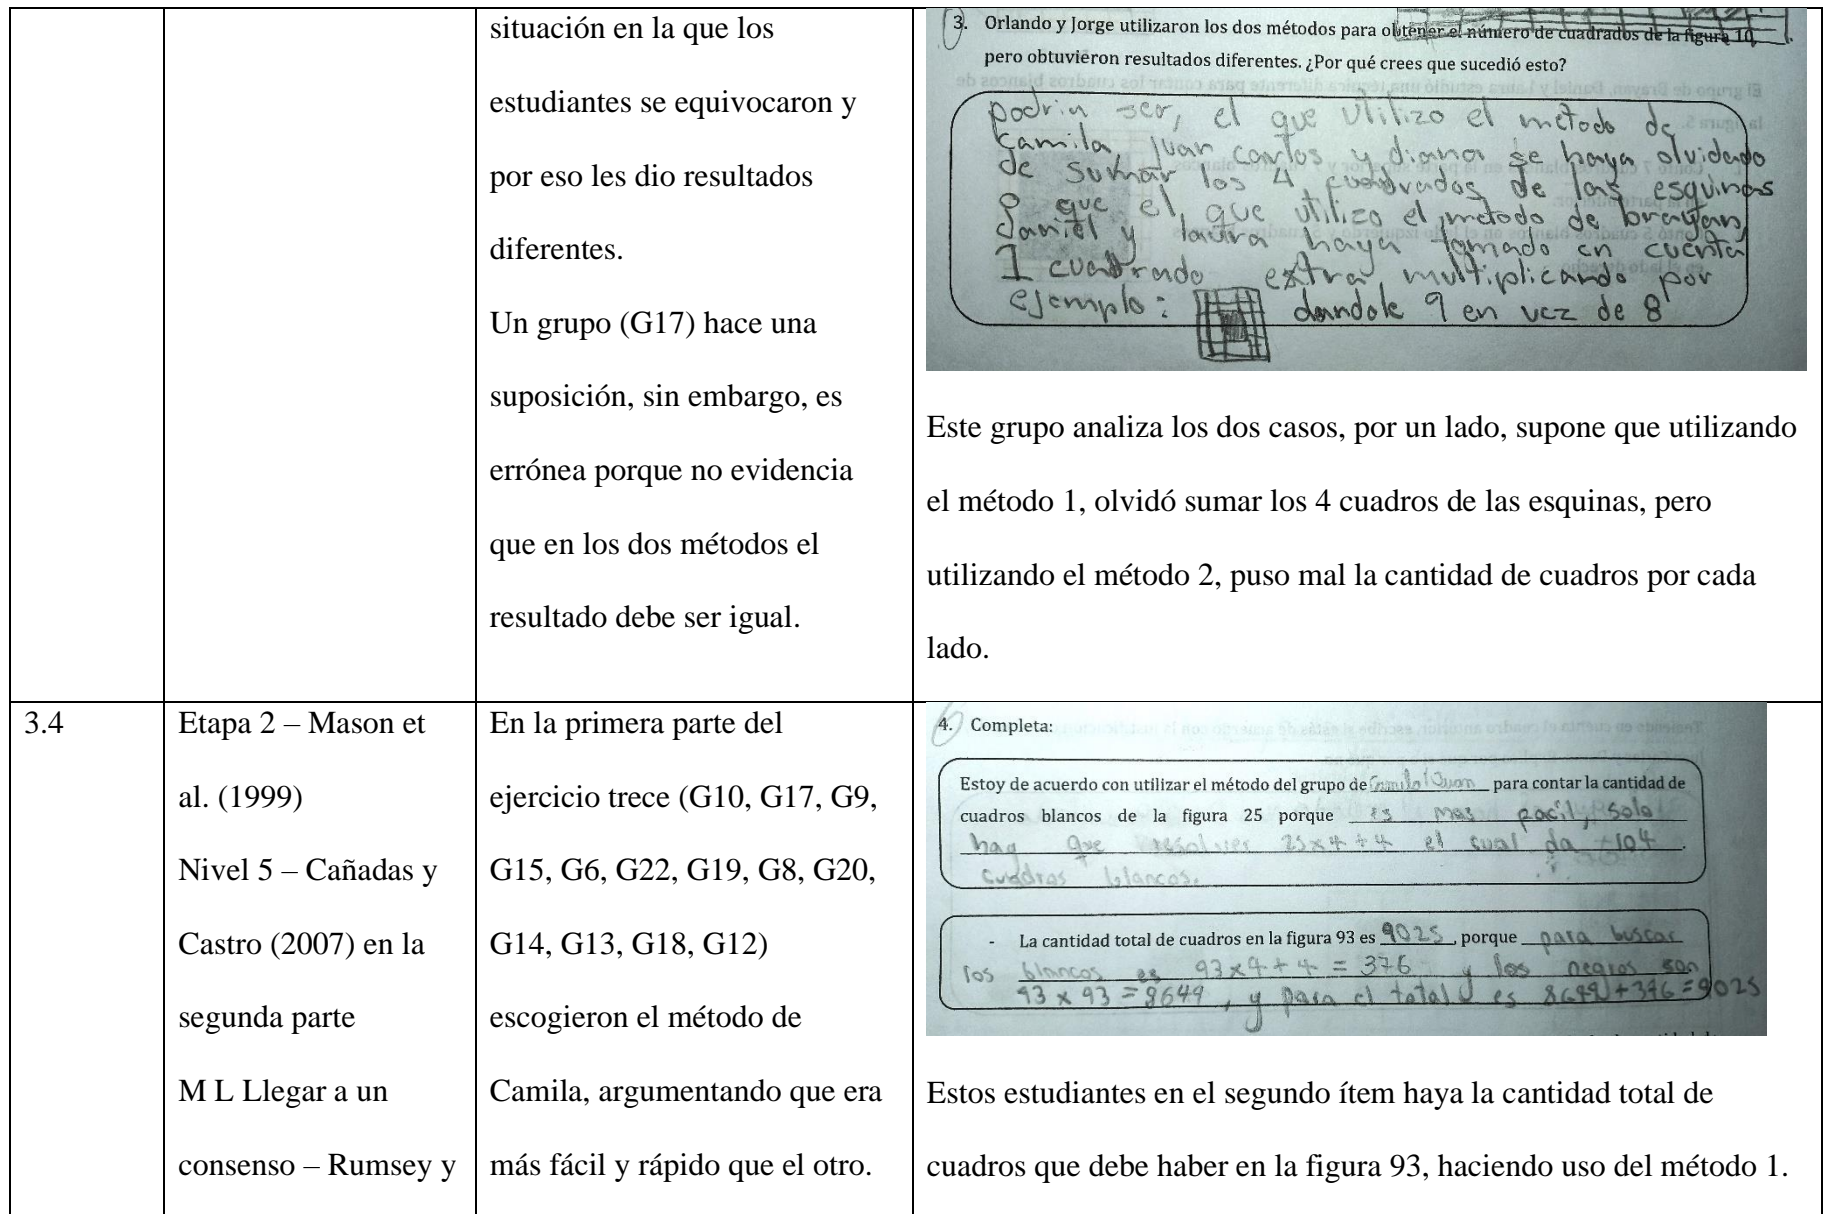 situación en la que los
estudiantes se equivocaron y
por eso les dio resultados
diferentes.
Un grupo (G17) hace una
suposición, sin embargo, es
errónea porque no evidencia
que en los dos métodos el
resultado debe ser igual.
3. Orlando y Jorge utilizaron los dos métodos para obtener el número de cuadrados de la figura 10,
pero obtuvieron resultados diferentes. ¿Por qué crees que sucedió esto?
podria ser, el que utilizo el metodo de
Camila, Juan carlos y diana se haya olvidado
de sumar los 4 cuadrados de las esquinas
o que el, que utilizo el metodo de brayan,
daniel y laura haya tomado en cuenta
1 cuadrado extra multiplicando por
ejemplo: dandole 9 en vez de 8
Este grupo analiza los dos casos, por un lado, supone que utilizando
el método 1, olvidó sumar los 4 cuadros de las esquinas, pero
utilizando el método 2, puso mal la cantidad de cuadros por cada
lado.
3.4
Etapa 2 – Mason et
al. (1999)
Nivel 5 – Cañadas y
Castro (2007) en la
segunda parte
M L Llegar a un
consenso – Rumsey y
En la primera parte del
ejercicio trece (G10, G17, G9,
G15, G6, G22, G19, G8, G20,
G14, G13, G18, G12)
escogieron el método de
Camila, argumentando que era
más fácil y rápido que el otro.
4. Completa:
Estoy de acuerdo con utilizar el método del grupo de Camila/Juan para contar la cantidad de
cuadros blancos de la figura 25 porque es mas facil, solo
hay que resolver 25x4+4 el cual da 104
cuadros blancos.
- La cantidad total de cuadros en la figura 93 es 9025, porque para buscar
los blancos es 93x4+4=376 y los negros son
93x93=8649, y para el total es 8649+376=9025
Estos estudiantes en el segundo ítem haya la cantidad total de
cuadros que debe haber en la figura 93, haciendo uso del método 1.